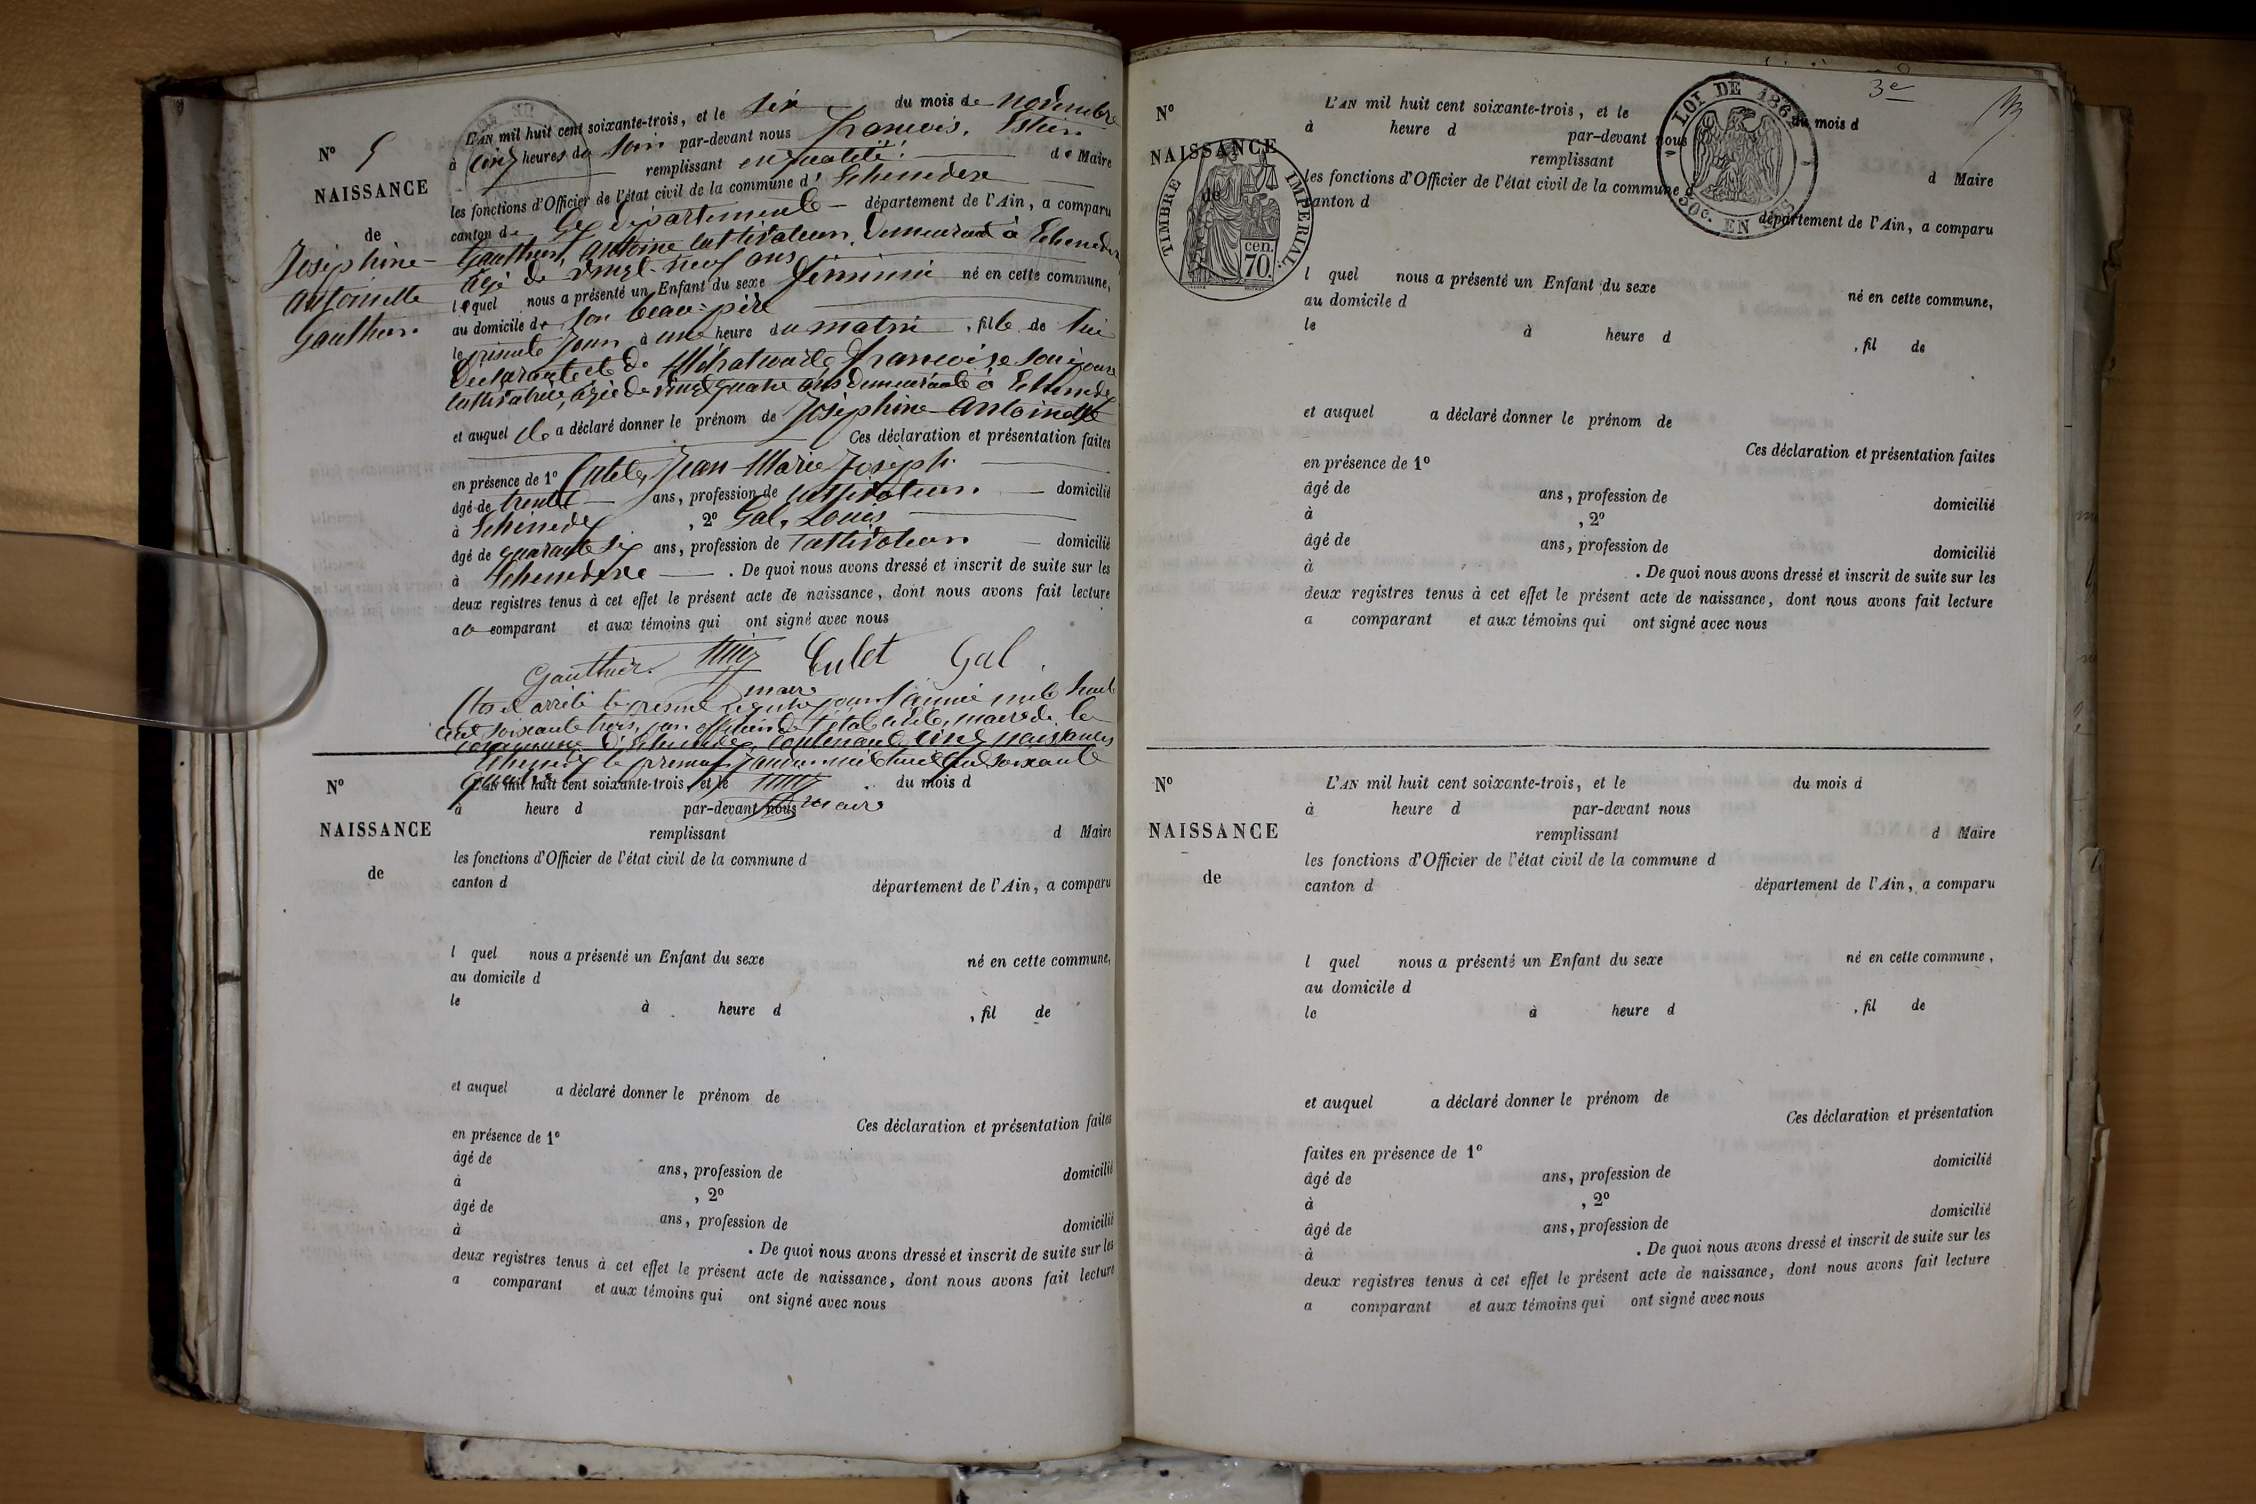 Nº 5
NAISSANCE
de
Joséphine
antoinette
gauthier.
L'AN mil huit cent soixante-trois, et le six du mois de novembre
à cinq heures du soir par-devant nous francois,
remplissant en qualité de Maire
les fonctions d'Officier de l'état civil de la commune d'
canton de département de l'Ain, a comparu
Gauthier, antoine cultivateur, demeurant à
agé de vingt-neuf ans
lequel nous a présenté un Enfant du sexe féminin né en cette commune,
au domicile de son beau-père
le présent jour à une heure du matin, fille de lui
déclarant et de françoise son épouse
cultivatrice, agée de vingt quatre ans demeurante à
et auquel il a déclaré donner le prénom de Joséphine-Antoinette
Ces déclaration et présentation faites
en présence de 1º Jean-Marie Joseph
âgé de trente ans, profession de cultivateur. domicilié
à , 2º Gal, Louis
âgé de quarante six ans, profession de cultivateur domicilié
à . De quoi nous avons dressé et inscrit de suite sur les
deux registres tenus à cet effet le présent acte de naissance, dont nous avons fait lecture
au comparant et aux témoins qui ont signé avec nous
Gauthier. Culet Gal.
maire
Clos et arrêté le présent registre pour l'année mil huit
cent soixante trois, par officier de l'état civil, maire de la
commune contenant cinq naissances
le premier janvier mil huit cent soixante
quatre
maire
Nº
NAISSANCE
de
L'AN mil huit cent soixante-trois, et le du mois d
à heure d par-devant nous
remplissant d Maire
les fonctions d'Officier de l'état civil de la commune d
canton d département de l'Ain, a comparu
l quel nous a présenté un Enfant du sexe né en cette commune,
au domicile d
le à heure d , fil de
et auquel a déclaré donner le prénom de
Ces déclaration et présentation faites
en présence de 1º
âgé de ans, profession de domicilié
à , 2º
âgé de ans, profession de domicilié
à . De quoi nous avons dressé et inscrit de suite sur les
deux registres tenus à cet effet le présent acte de naissance, dont nous avons fait lecture
a comparant et aux témoins qui ont signé avec nous
3e
LOI DE 1862
50c. EN SUS
TIMBRE IMPÉRIAL.
cen.
70.
Nº
NAISSANCE
de
L'AN mil huit cent soixante-trois, et le du mois d
à heure d par-devant nous
remplissant d Maire
les fonctions d'Officier de l'état civil de la commune d
canton d département de l'Ain, a comparu
l quel nous a présenté un Enfant du sexe né en cette commune,
au domicile d
le à heure d , fil de
et auquel a déclaré donner le prénom de
Ces déclaration et présentation faites
en présence de 1º
âgé de ans, profession de domicilié
à , 2º
âgé de ans, profession de domicilié
à . De quoi nous avons dressé et inscrit de suite sur les
deux registres tenus à cet effet le présent acte de naissance, dont nous avons fait lecture
a comparant et aux témoins qui ont signé avec nous
Nº
NAISSANCE
de
L'AN mil huit cent soixante-trois, et le du mois d
à heure d par-devant nous
remplissant d Maire
les fonctions d'Officier de l'état civil de la commune d
canton d département de l'Ain, a comparu
l quel nous a présenté un Enfant du sexe né en cette commune,
au domicile d
le à heure d , fil de
et auquel a déclaré donner le prénom de
Ces déclaration et présentation
faites en présence de 1º
âgé de ans, profession de domicilié
à , 2º
âgé de ans, profession de domicilié
à . De quoi nous avons dressé et inscrit de suite sur les
deux registres tenus à cet effet le présent acte de naissance, dont nous avons fait lecture
a comparant et aux témoins qui ont signé avec nous